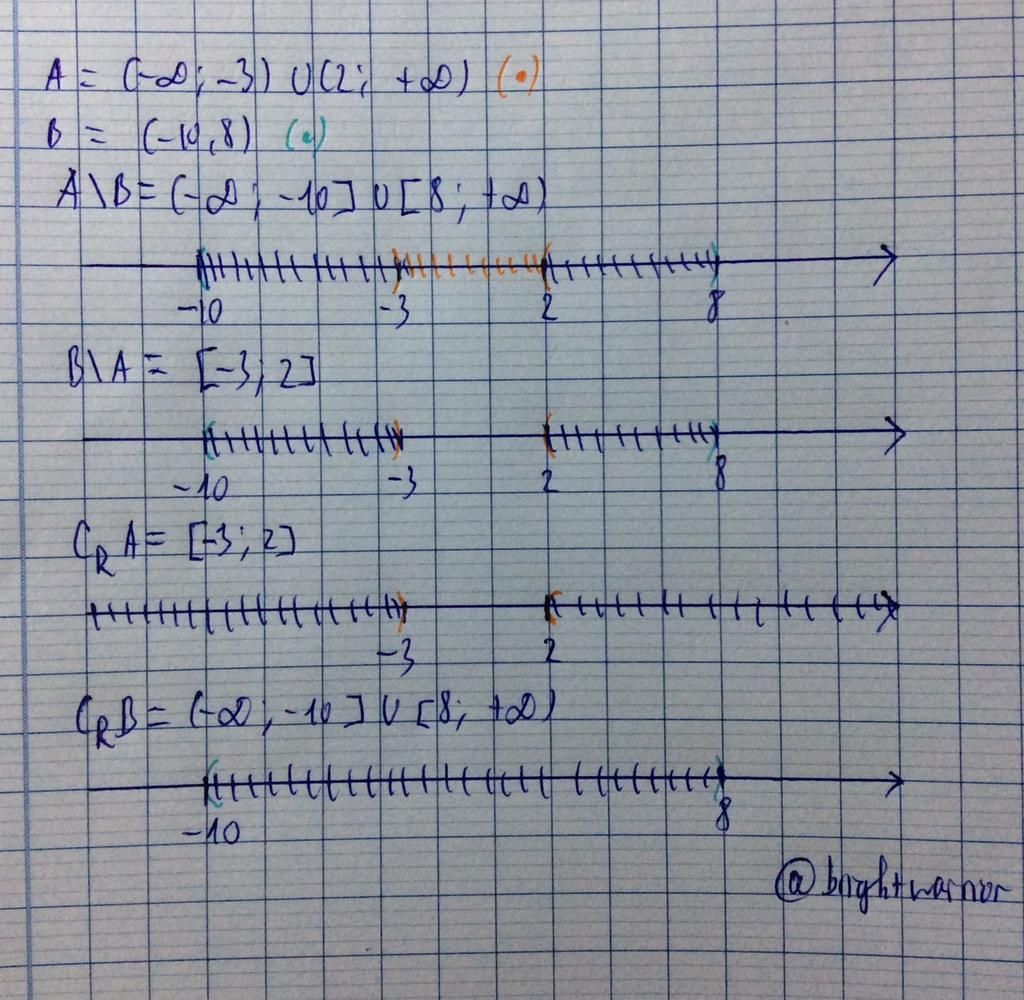 A = (-∞; -3) ∪ (2; +∞) (•)
B = (-10, 8) (•)
A \ B = (-∞; -10] ∪ [8; +∞)
-10 -3 2 8
B \ A = [-3; 2]
-10 -3 2 8
C_R A = [-3; 2]
-3 2
C_R B = (-∞; -10] ∪ [8; +∞)
-10 8
@brightwarrior